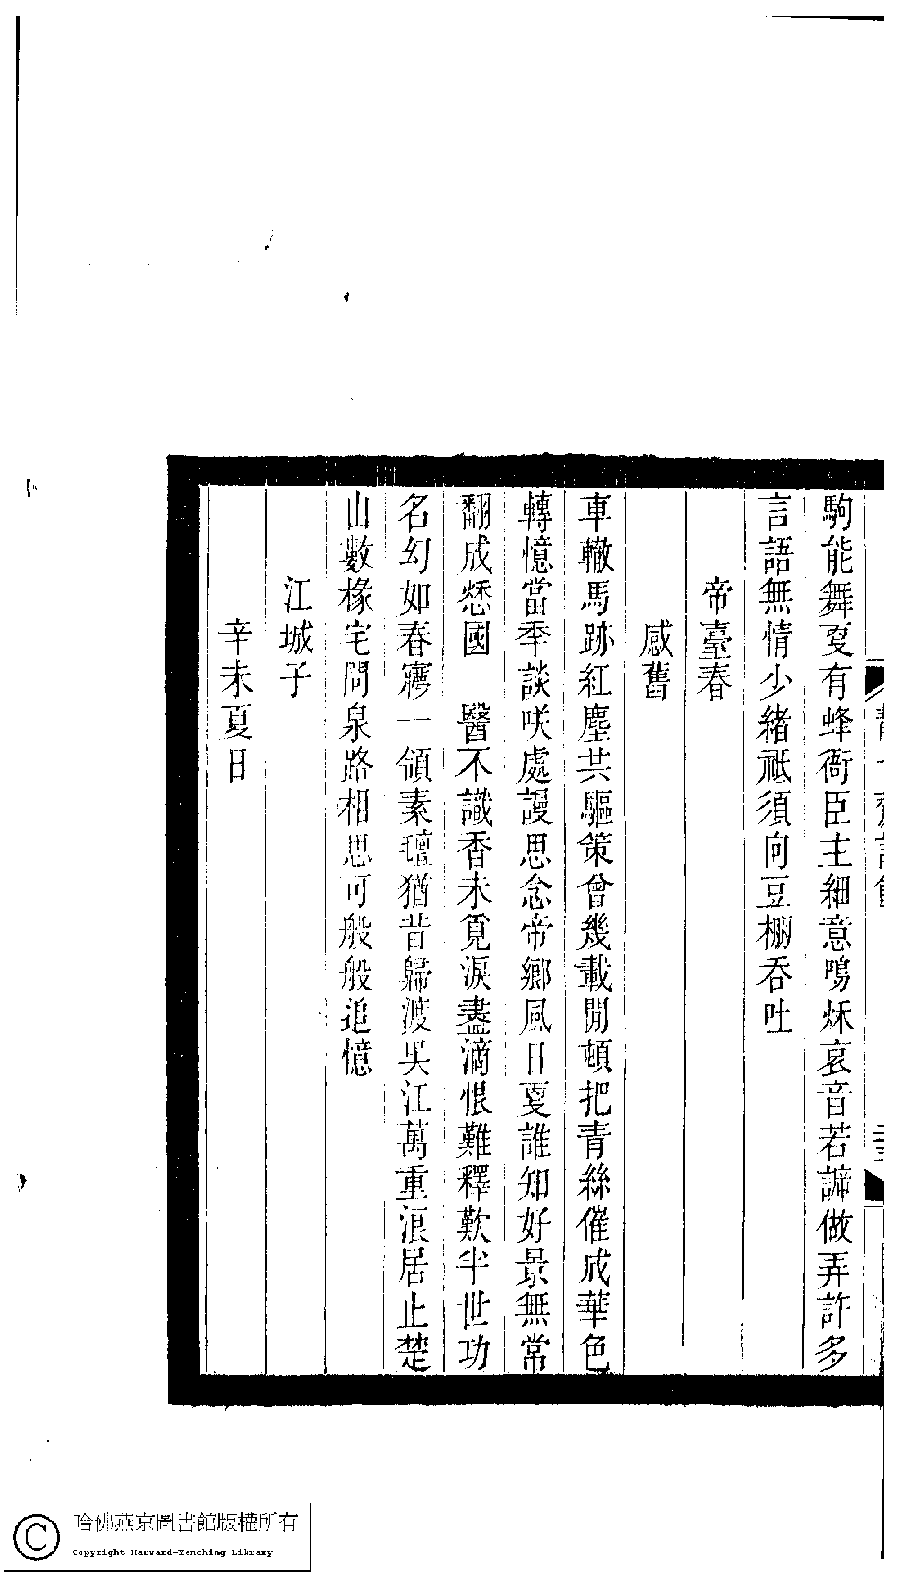 駒能舞夏有蜂衙臣主細意鳴秌哀音若諦做弄許多
言語無情少緒祗須向豆棚吞吐
帝臺春
感舊
車轍馬跡紅塵共驅策曾幾載閒頓把青絲催成華色
轉憶當秊談咲處謾思念帝鄉風日夏誰知好景無常
翻成愁國 醫不識香未覓淚盡滴恨難釋歎半世功
名幻如春㝱一領素氊猶昔歸渡吳江萬重浪居止楚
山數椽宅問泉路相思可般般追憶
江城子
辛未夏日
哈佛燕京圖書館版權所有
Copyright Harvard-Yenching Library